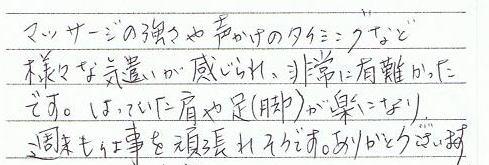 マッサージの強さや声かけのタイミングなど
様々な気遣いが感じられ、非常に有難かった
です。はっていた肩や足(脚)が楽になり
週末も仕事を頑張れそうです。ありがとうございます